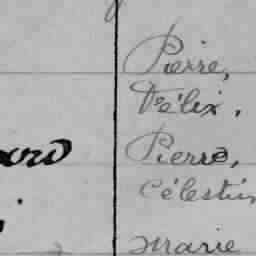 Pierre,
Félix,
Pierre,
Célestin
Marie